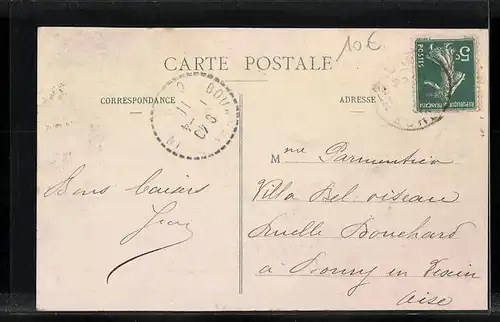 10€
CARTE POSTALE
CORRESPONDANCE
ADRESSE
5c
POSTES
REPUBLIQUE FRANÇAISE
Bons baisers
Mme Parmentier
Villa Bel oiseau
Ruelle Bouchard
à en Vexin
Oise